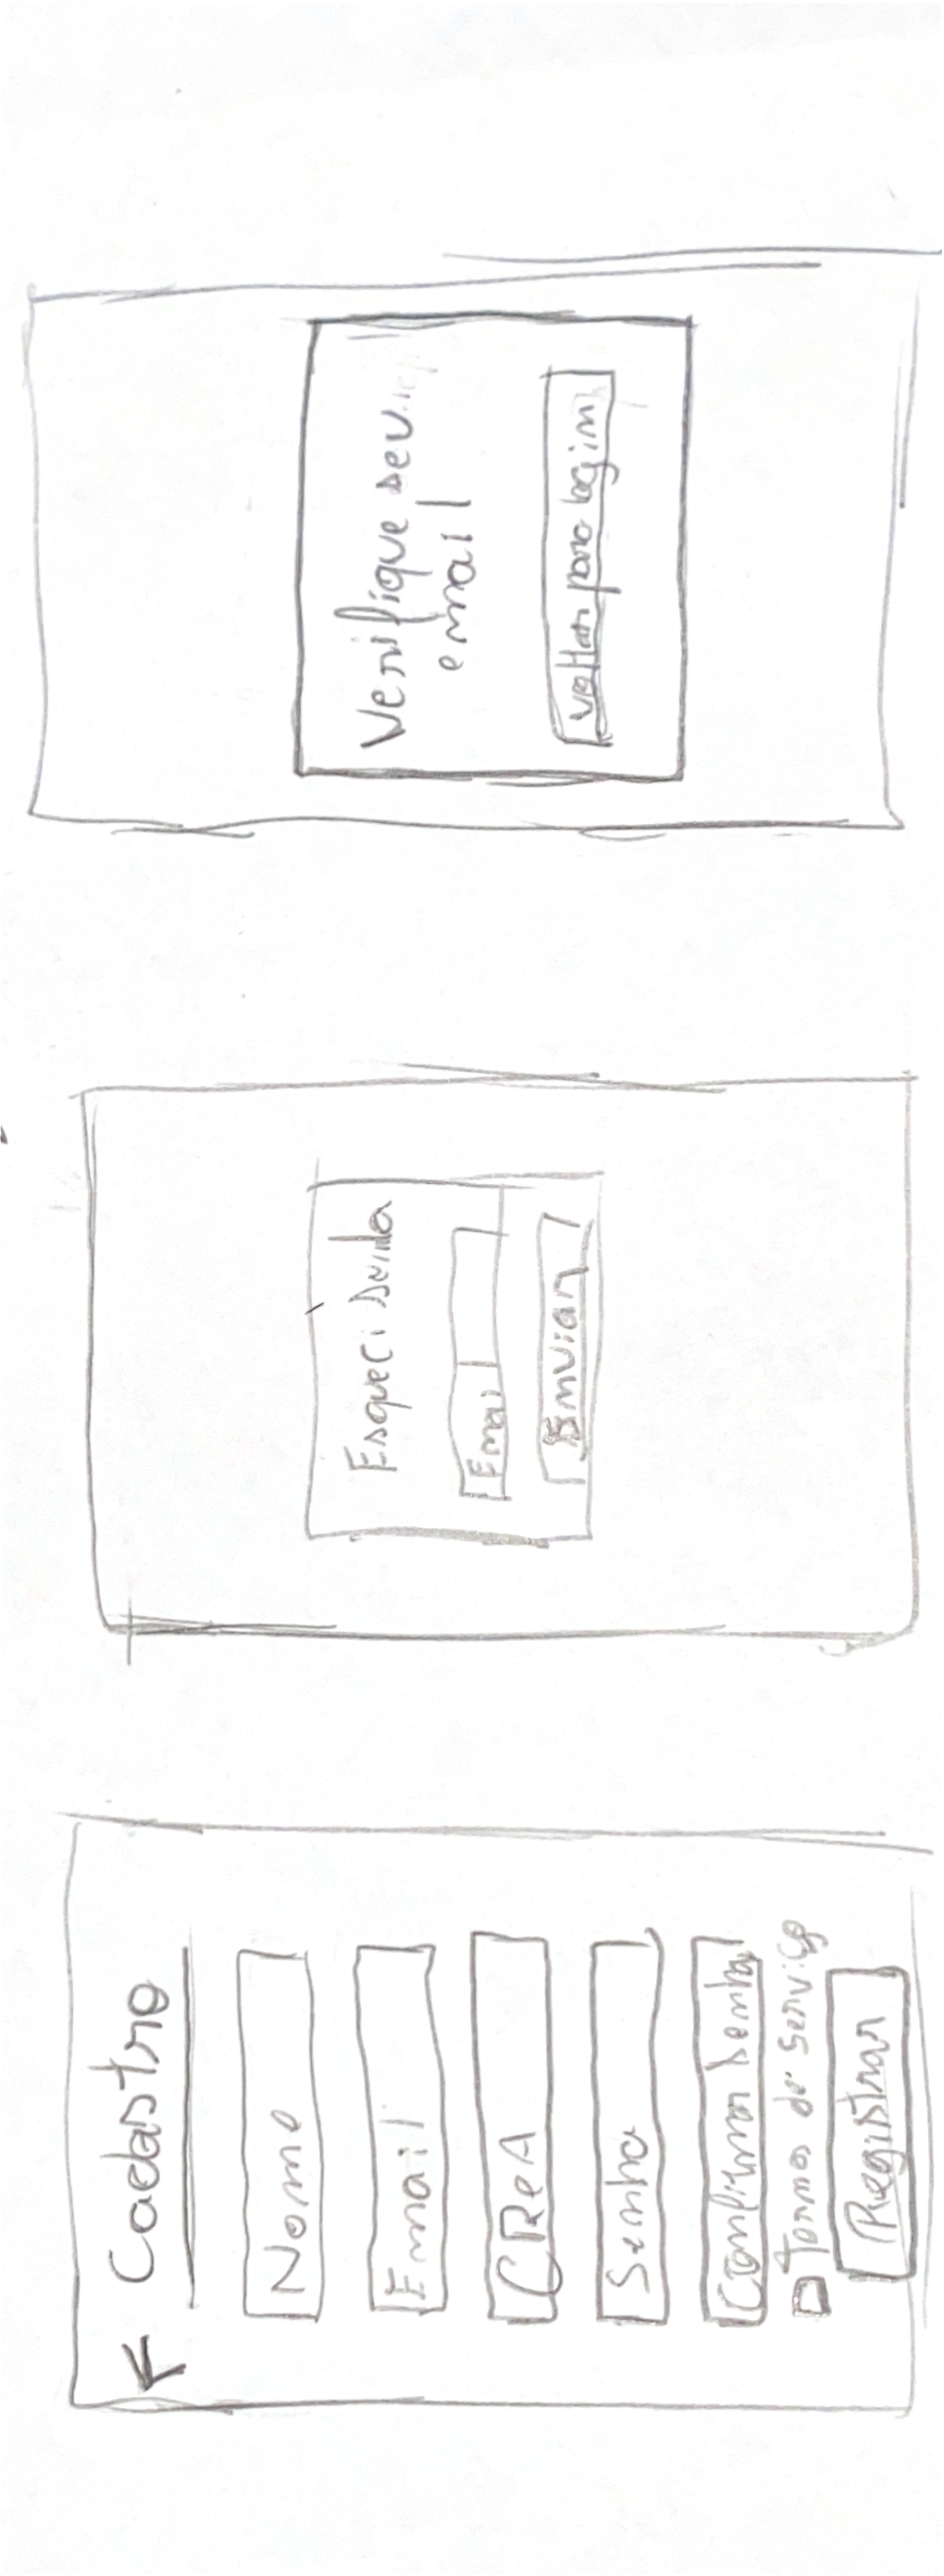 Cadastro
Nome
Email
CReA
Senha
Confirmar Senha
Termos de Serviço
Registrar
Esqueci Senha
Email
Enviar
Verifique seu
email
Voltar para login